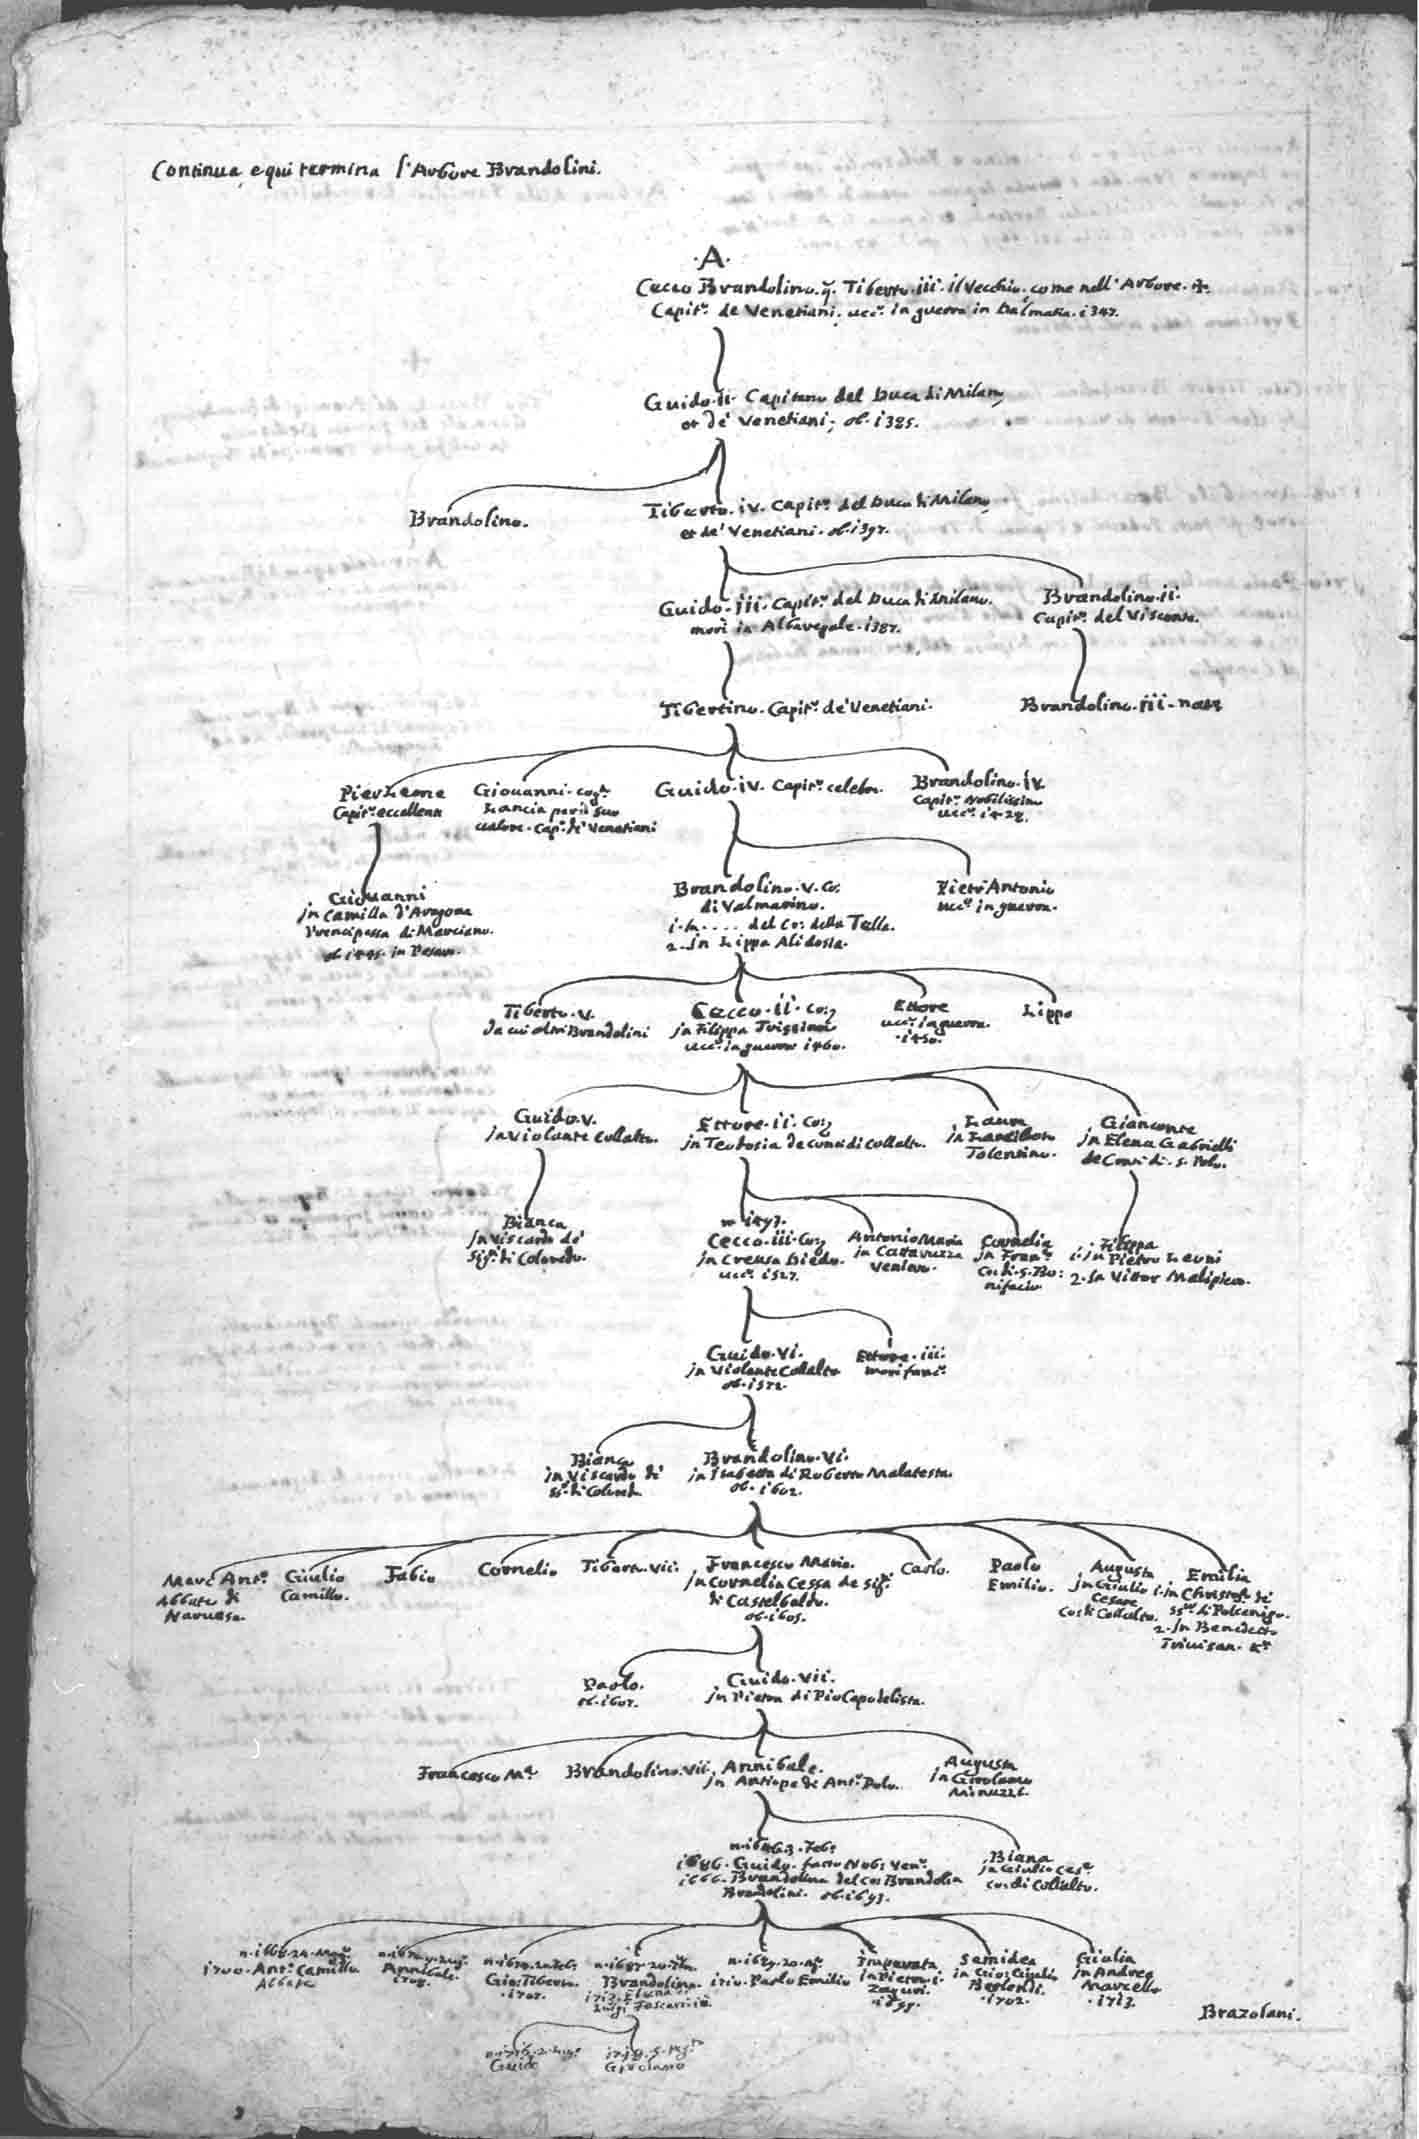 Continua, e qui termina l'Arbore Brandolini.
.A.
Cecco Brandolino. q. Tiberto. iii. il Vecchio. come nell' Arbore. +.
Capit.º de Venetiani. ucc.º in guerra in Dalmatia. i347.
Guido. ii. Capitano del Duca di Milano,
et de' Venetiani; ob. i385.
Brandolino.
Tiberto. iv. Capit.º del Duca di Milano,
et de' Venetiani. ob. i397.
Guido. iii. Capit.º del Duca di Milano.
morì in Albaregale. i387.
Brandolino. ii.
Capit.º del Visconte.
Tibertino. Capit.º de' Venetiani.
Brandolino. iii. nat.
Pier Leone
Capit.º eccellente
Giovanni. cog.º
Lancia per il suo
valore. Cap.º de' Venetiani
Guido. iv. Capit.º celebre.
Brandolino. iv.
Capit.º Nobilissimo
ucc.º i424.
Giovanni
in Camilla d'Aragona
Prencipessa di Marciano.
in Pesaro.
Brandolino. v. Co:
di Valmarino.
i. in .... del Co: della Tella.
2. in Lippa Alidosia.
Pietr'Antonio
ucc.º in guerra.
Tiberto. v.
da cui altri Brandolini
Cecco. ii. Co:
in Filippa Trissina
ucc.º in guerra i460.
Ettore
ucc.º in guerra.
.i450.
Lippo
Guido. v.
in Violante Collalto.
Ettore. ii. Co:
in Teodosia de Conti di Collalto.
Laura
in
Tolentino.
Gianconte
in Elena Gabrielli
de Conti di. S. Polo.
Bianca
in Viscardo de'
Sig.ri di Coloredo.
n. i497.
Cecco. iii. Co:
in Creusa Diedo.
ucc.º i527.
Antonio Maria
in Cattaruzza
Veniero.
Cornelia
in Fran.co
Co: di. S. Bo:
nifacio.
Filippa
i. in Pietro Leoni
2. in Vittor Malipiero.
Guido. vi.
in Violante Collalto
ob. i572.
Ettore. iii.
morì fanc.º
Bianca
in Viscardo di
SS.ri di Colored.
Brandolino. vi.
in Isabetta di Roberto Malatesta.
ob. i602.
Marc'Ant.º
Abbate di
Narvesa.
Giulio
Camillo.
Fabio
Cornelio
Tiberto. vii.
Francesco Maria.
in Cornelia Cessa de Sig.ri
di Castelbaldo.
ob. i605.
Carlo.
Paolo
Emilio.
Augusta
in Giulio
Cesare
Co: di Collalto.
Emilia
i. in Christof.º de'
SS.ri di Polcenigo.
2. in Benedetto
Trivisan. K.r
Paolo.
ob. i607.
Guido. vii.
in Pietra di Pio Capodelista.
Francesco M.a
Brandolino. vii.
Annibale.
in Antiope de Ant.º Polo.
Augusta
in Girolamo
Minuzzi.
n. i646. 3. Feb:
i686. Guido. fatto Nob: Ven.º
i666. Brandolina del Co: Brandolin
Brandolini. ob. i693.
Biana
in Giulio Ces.e
Co: di Collalto.
n. i668. 24. Mag.º
i700. Ant.º Camillo
Abbate
Annibale.
Gio: Tiberto.
.i707.
Brandolino.
i713. Elena di
Luigi Foscari. iii.
n. i689. 20.
i710. Paolo Emilio
Imperata
in Pietro. i.
Zaguri.
.i695.
Semidea
in Gio: Giulio
Berlendi.
.i702.
Giulia
in Andrea
Marcello
.i713.
Brazolani.
Guido
Girolamo